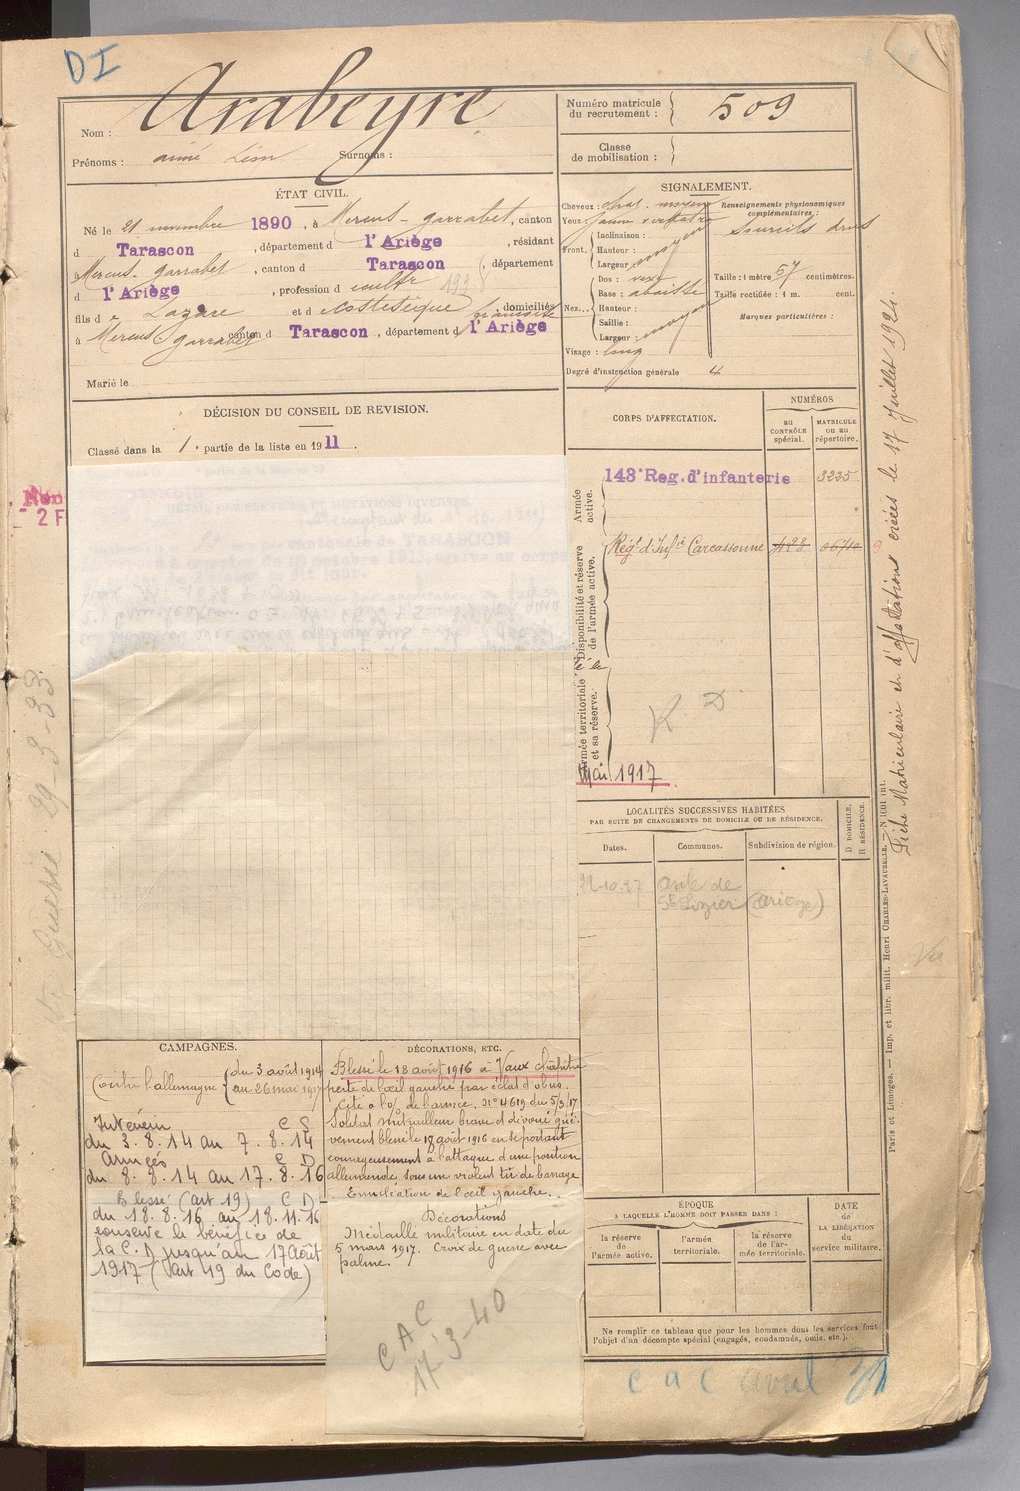 DI
Nom : Arabeyre
Prénoms : aimé Léon Surnoms :
Numéro matricule du recrutement : 509
Classe de mobilisation :
ÉTAT CIVIL.
Né le 21 novembre 1890, à Mercus-garrabet, canton
d Tarascon, département d l'Ariège, résidant
à Mercus-garrabet, canton d Tarascon, département
d l'Ariège, profession d cultr
fils de Lazare et d , domiciliés
à Mercus garrabet canton d Tarascon, département d l'Ariège
Marié le
SIGNALEMENT.
Cheveux : chat. moyen
Yeux : jaune verdâtre
Front. Inclinaison :
Hauteur : moyen
Largeur :
Nez. Dos : vexe
Base : abaissé
Hauteur :
Saillie : moyen
Largeur :
Visage : long
Degré d'instruction générale 4
Renseignements physionomiques complémentaires :
Sourcils drus
Taille : 1 mètre 57 centimètres.
Taille rectifiée : 1 m. cent.
Marques particulières :
DÉCISION DU CONSEIL DE REVISION.
Classé dans la 1e partie de la liste en 1911.
CORPS D'AFFECTATION.
NUMÉROS
au CONTRÔLE spécial.
MATRICULE ou au répertoire.
Armée active.
143e Reg. d'infanterie 3235
Disponibilité et réserve de l'armée active.
Régt d'Infie Carcassonne 428 06710
Armée territoriale et sa réserve.
K D
Mai 1917
Fiche Matriculaire et d'affectations créées le 17 Juillet 1924.
29-3-33
LOCALITÉS SUCCESSIVES HABITÉES
PAR SUITE DE CHANGEMENTS DE DOMICILE OU DE RÉSIDENCE.
Dates.
Communes.
Subdivision de région.
D. DOMICILE.
R. RÉSIDENCE.
22-10-27 asile de
St Lizier (Ariège)
Vu
CAMPAGNES.
Contre l'allemagne du 3 août 1914
au 26 mai 1917
Intérieur C S
du 3.8.14 au 7.8.14
Armées C D
du 8.8.14 au 17.8.16
Blessé (art 19) C D
du 18.8.16 au 18.11.16
conserve le bénéfice de
la C.D jusqu'au 17 Août
1917 (art 19 du Code)
DÉCORATIONS, ETC.
Blessé le 18 août 1916 à Vaux chapitre
perte de l'œil gauche par éclat d'obus.
Cité à l'o/ de l'armée. No 4619 du 5/3/17
Soldat mitrailleur brave et dévoué griè-
vement blessé le 18 août 1916 en se portant
courageusement à l'attaque d'une position
allemande, sous un violent tir de barrage
Enucléation de l'œil gauche.
Décorations
Médaille militaire en date du
5 mars 1917. Croix de guerre avec
palme.
CAC
17-3-40
ÉPOQUE
A LAQUELLE L'HOMME DOIT PASSER DANS :
la réserve de l'armée active.
l'armée territoriale.
la réserve de l'armée territoriale.
DATE de LA LIBÉRATION du service militaire.
Ne remplir ce tableau que pour les hommes dont les services font
l'objet d'un décompte spécial (engagés, condamnés, omis, etc.).
Paris et Limoges. — Imp. et libr. milit. Henri CHARLES-LAVAUZELLE. — N 1001 int.
c a c avril